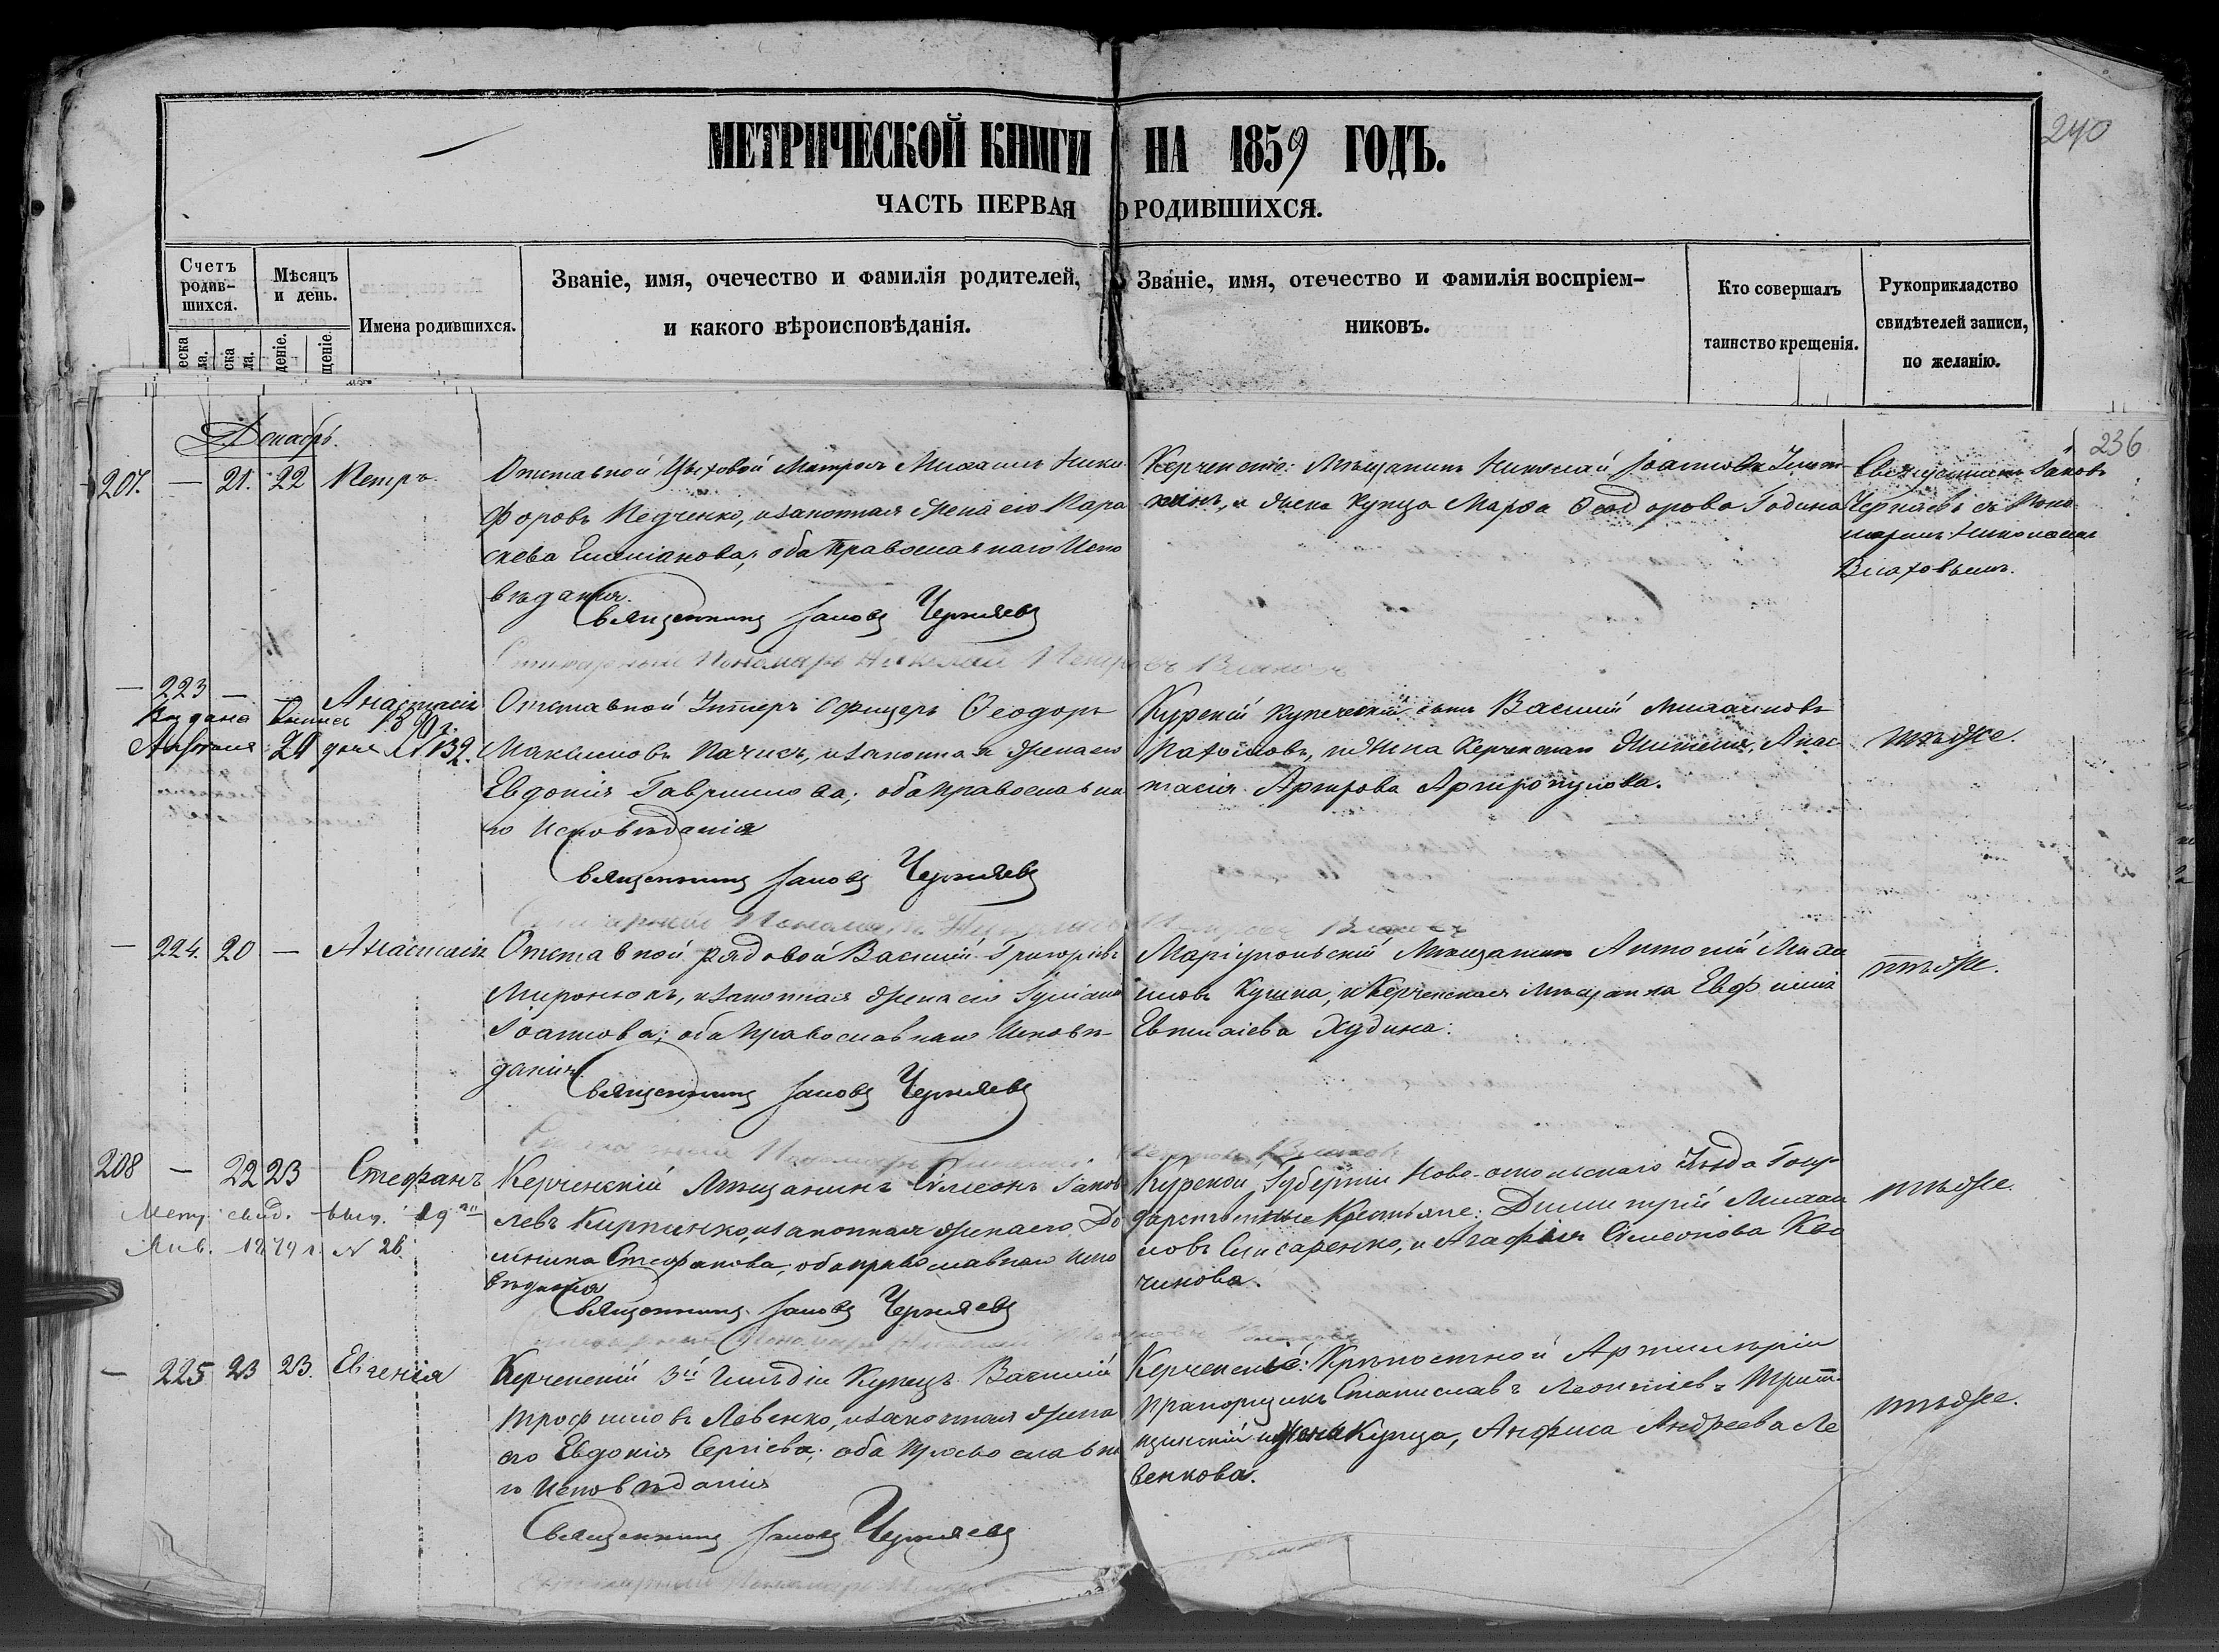 240
МЕТРИЧЕСКОЙ КНИГИ НА 1859 ГОДЪ.
ЧАСТЬ ПЕРВАЯ О РОДИВШИХСЯ.
Счетъ родив-шихся.
Мѣсяцъ и день.
Имена родившихся.
Званіе, имя, очечество и фамилія родителей,
и какого вѣроисповѣданія.
Званіе, имя, отечество и фамилія воспріем-
никовъ.
Кто совершалъ
таинство крещенія.
Рукоприкладство
свидѣтелей записи,
по желанію.
еска ла. ска ла. деніе. щеніе.
236
Декабрь.
207. — 21. 22 Петръ.
Отставной Цеховой Матросъ Михаилъ Ники
форовъ Педченко, и законная жена его Пара
скева Емеліанова; оба Православнаго Испо
вѣданія.
Священникъ Іаковъ Черняевъ
Стихарный Пономарь Николай Петровъ Влахов
Керченскіе: Мѣщанинъ Николай Іоанновъ
и жена Купца Марѳа Ѳеодорова Година
Священникъ Іаковъ
Черняевъ съ Поно
маремъ Николаемъ
Влаховымъ.
— 223 — — Анастасія
Выдана Выпись 1890 г.
20 дня № 132.
Отставной Унтеръ Офицеръ Ѳеодоръ
Максимовъ Пачисъ, и законная жена его
Евдокія Гаврилова; оба православна
го Исповѣданія
Священникъ Іаковъ Черняевъ
Стихарный Пономарь
Курскій купеческій сынъ Василій Михаиловъ
Пахомовъ, и жена Керченскаго Жителя, Анас
тасія Аргирова Аргиропулова.
тѣже.
— 224. 20 — Анастасія
Отставной рядовой Василій Григорьевъ
Миронюкъ, и законная жена его Іуліанія
Іоаннова; оба православнаго Исповѣ-
данія
Священникъ Іаковъ Черняевъ
Маріупольскій Мѣщанинъ Антоній Миха
иловъ Кущна, и Керченская мѣщанка Евфимія
Евтихіева Худина.
тѣже.
208 — 22 23 Стефанъ
Метр. свид. выд. 19го
Янв. 1879 г. № 26.
Керченскій Мѣщанинъ Симеонъ Іаков
левъ Кирпинко, и законная жена его До
мника Стефанова, оба православнаго испо
вѣданія
Священникъ Іаковъ Черняевъ
Курской Губерніи Ново-оскольскаго Уѣзда Госу-
дарственные Крестьяне: Димитрій Михаи
ловъ Слисаренко, и Агафія Симеонова Кал
чинова.
тѣже.
— 225 23 23. Евгенія
Керченскій 3й Гильдіи Купецъ Василій
Трофимовъ Левенко, и законная жена
его Евдокія Сергіева; оба Православна
го Исповѣданія
Священникъ Іаковъ Черняевъ
Керченскіе: Крѣпостной Артиллеріи
прапорщикъ Станиславъ Леонтіевъ
и жена Купца, Анфиса Андреева Ле
венкова.
тѣже.